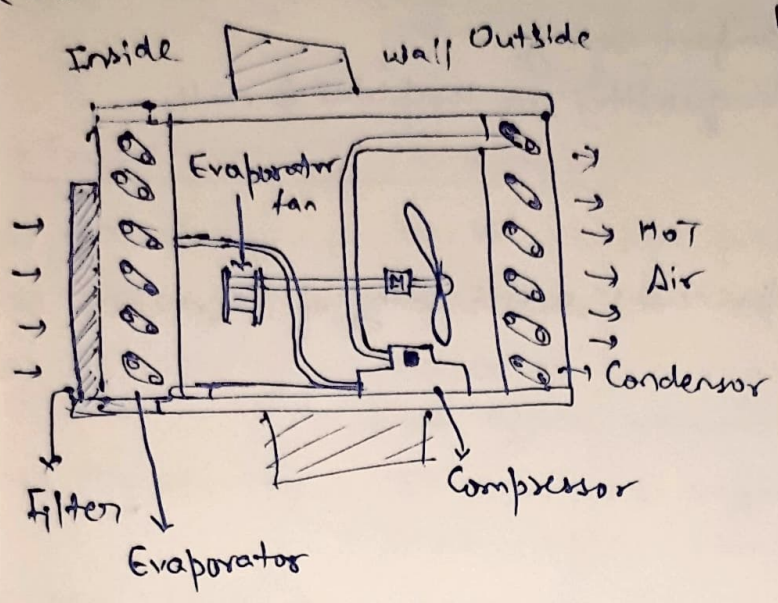 Inside
wall
Outside
Evaporator
fan
M
HOT
Air
Condensor
Compressor
Filter
Evaporator